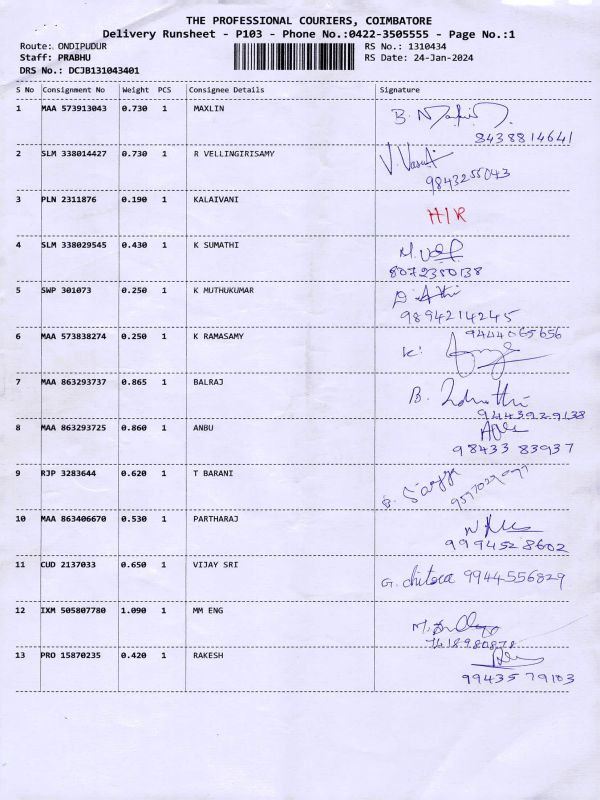 THE PROFESSIONAL COURIERS, COIMBATORE
Delivery Runsheet - P103 - Phone No.:0422-3505555 - Page No.:1
Route: ONDIPUDUR RS No.: 1310434
Staff: PRABHU RS Date: 24-Jan-2024
DRS No.: DCJB131043401
S No Consignment No Weight PCS Consignee Details Signature
1 MAA 573913043 0.730 1 MAXLIN B.
8438814641
2 SLM 338014427 0.730 1 R VELLINGIRISAMY V. Vasuki
9843255043
3 PLN 2311876 0.190 1 KALAIVANI H/R
4 SLM 338029545 0.430 1 K SUMATHI M.
8072380138
5 SWP 301073 0.250 1 K MUTHUKUMAR
9894214245
6 MAA 573838274 0.250 1 K RAMASAMY 9444065656
K.
7 MAA 863293737 0.865 1 BALRAJ B.
9443929138
8 MAA 863293725 0.860 1 ANBU
98433 83937
9 RJP 3283644 0.620 1 T BARANI
10 MAA 863406670 0.530 1 PARTHARAJ
9994528602
11 CUD 2137033 0.650 1 VIJAY SRI G. chitora 9944556829
12 IXM 505807780 1.090 1 MM ENG M.
7418980878
13 PRO 15870235 0.420 1 RAKESH
99435 79103